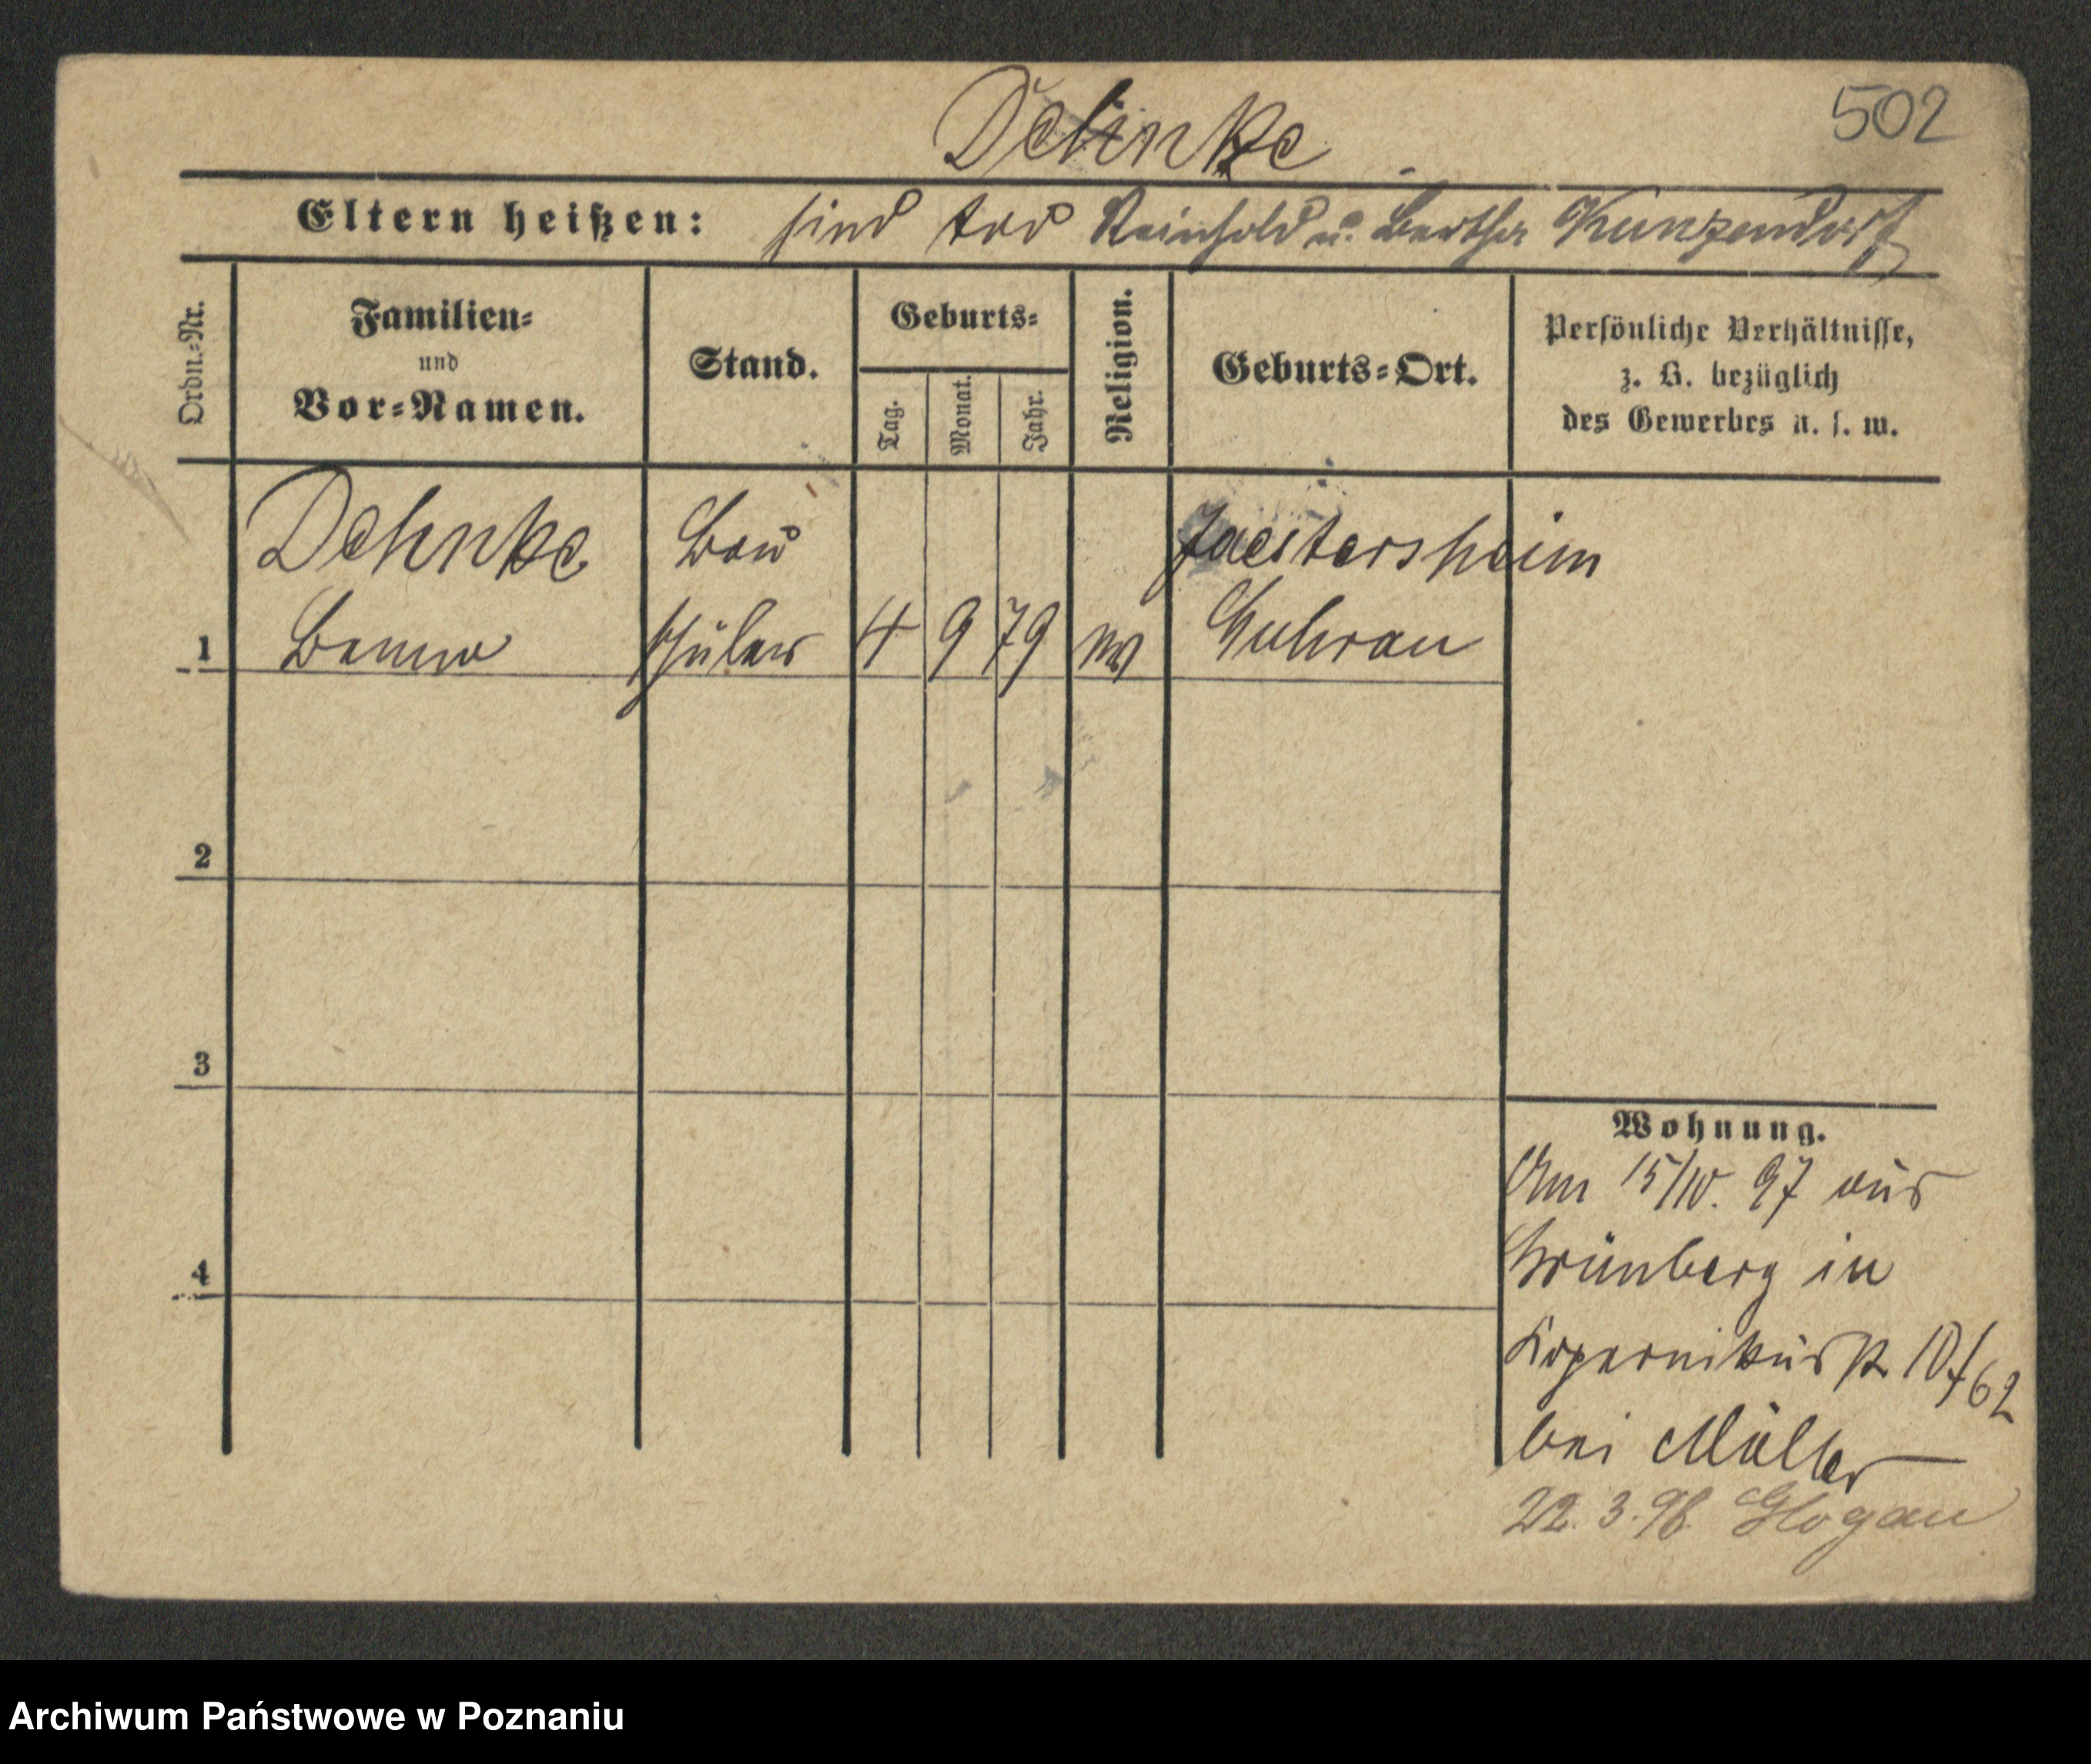 502
Dehnke
Eltern heißen: sind tod Reinhold u. Bertha Kunzendorf
Ordn.-Nr.
Familien-
und
Vor-Namen.
Stand.
Geburts-
Tag.
Monat.
Jahr.
Religion.
Geburts-Ort.
Persönliche Verhältnisse,
z. B. bezüglich
des Gewerbes u. s. w.
Dehnke Bau
1 Benno schüler 4 9 79 ev Guhrau
2
3
4
Wohnung.
Am 15/10. 97 aus
Grünberg in
Kopernikusstr 10
bei Müller
22. 3. 98. Glogau
Archiwum Państwowe w Poznaniu